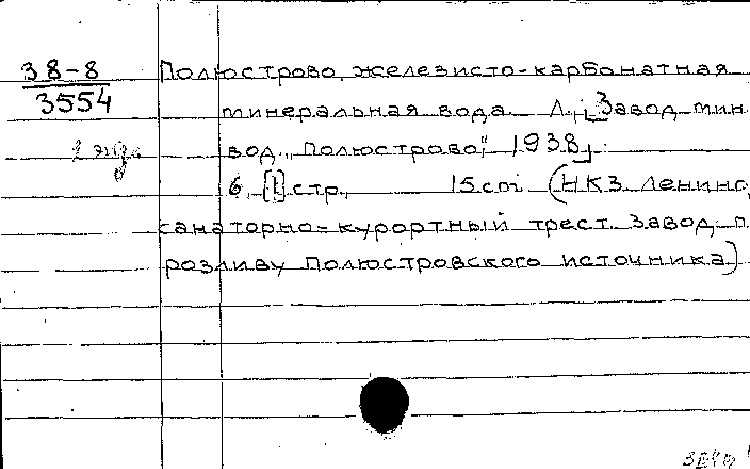 38-8
3554
Полюстрово, железисто-карбонатная
минеральная вода. Л., [Завод мин
вод „Полюстрово“, 1938]
6, [1] стр. 15 cm (НКЗ. Ленинг,
санаторно-курортный трест. Завод п
розливу Полюстровского источника)